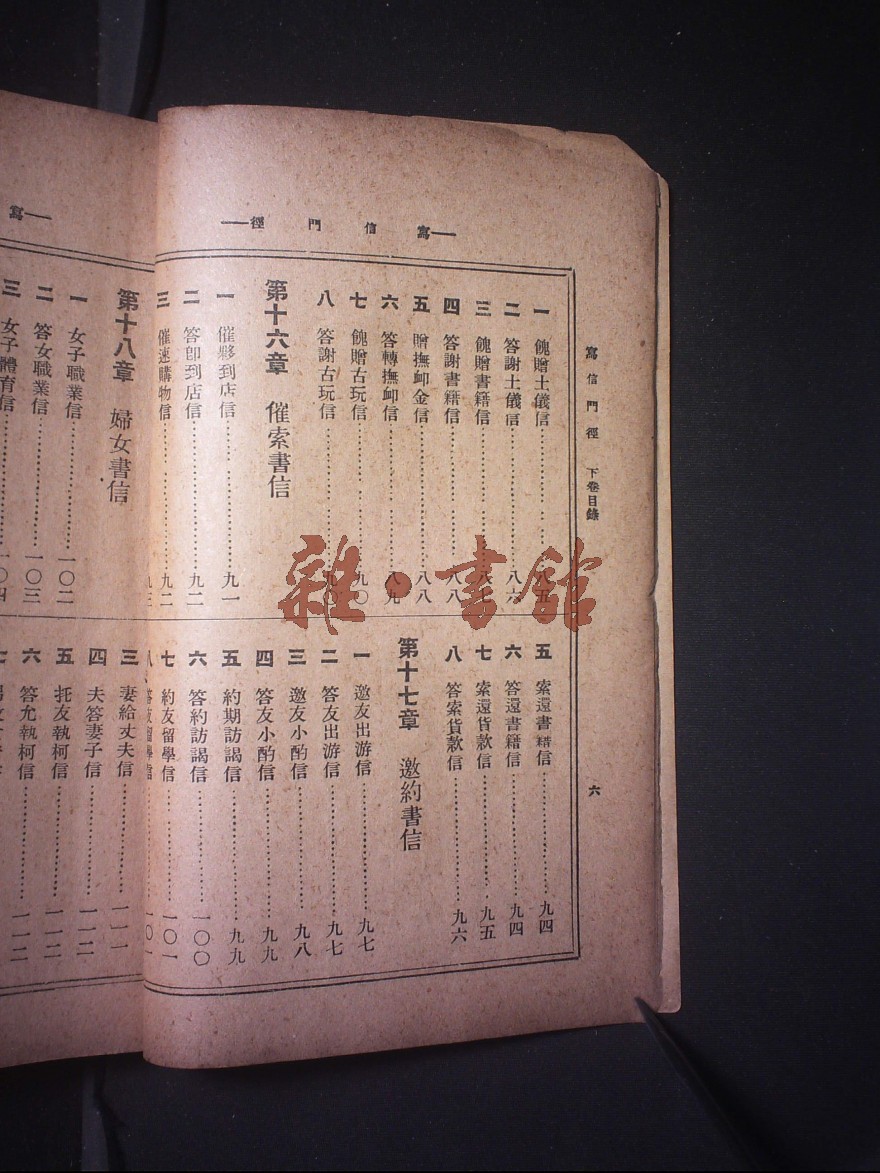 寫信門徑
寫信門徑 下卷目錄
六
一 餽贈土儀信 八五
二 答謝土儀信 八六
三 餽贈書籍信 八七
四 答謝書籍信 八八
五 贈撫卹金信 八八
六 答轉撫卹信 八九
七 餽贈古玩信 九〇
八 答謝古玩信 九〇
第十六章 催索書信
一 催夥到店信 九一
二 答卽到店信 九二
三 催速購物信 九三
五 索還書籍信 九四
六 答還書籍信 九四
七 索還貨款信 九五
八 答索貨款信 九六
第十七章 邀約書信
一 邀友出游信 九七
二 答友出游信 九七
三 邀友小酌信 九八
四 答友小酌信 九九
五 約期訪謁信 九九
六 答約訪謁信 一〇〇
七 約友留學信 一〇一
八 答友留學信 一〇一
寫
第十八章 婦女書信
一 女子職業信 一〇二
二 答女職業信 一〇三
三 女子體育信 一〇四
三 妻給丈夫信 一一一
四 夫答妻子信 一一二
五 托友執柯信 一一二
六 答尤執柯信 一一二
七
雜·書館